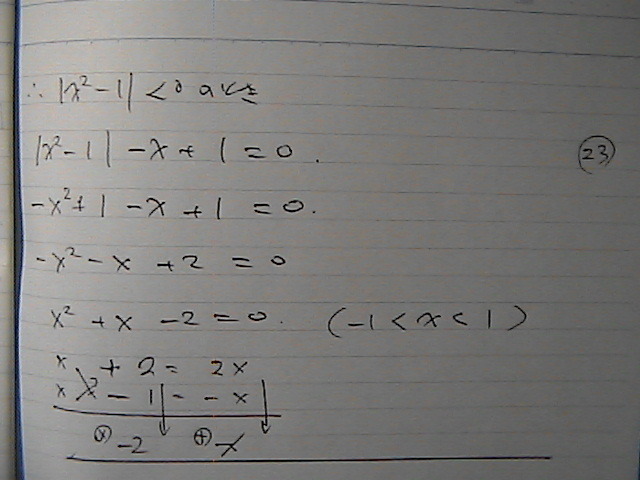 ∴ |x²-1| < 0 のとき
|x²-1| -x + 1 = 0.
(23)
-x²+1 -x +1 = 0.
-x² -x +2 = 0
x² + x -2 = 0. (-1 < x < 1)
x + 2 = 2x
x x - 1 = -x
(x) -2 (+) x